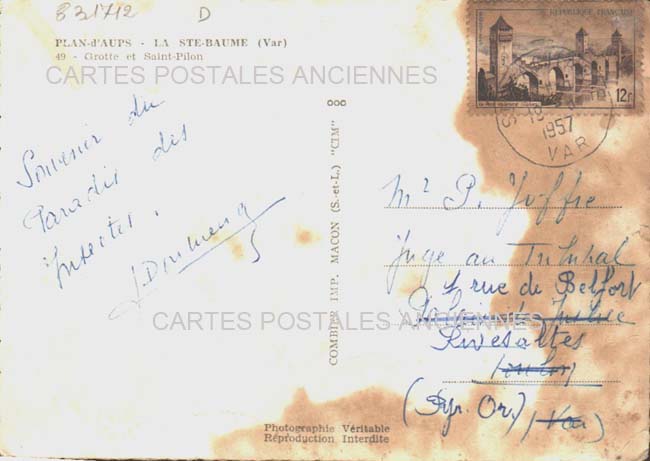 831712 D
PLAN-d'AUPS - LA STE-BAUME (Var)
49 - Grotte et Saint-Pilon
CARTES POSTALES ANCIENNES
Souvenir du
Paradis des
Insectes.
COMBIER IMP. MACON (S.-et-L.) "CIM"
REPUBLIQUE FRANÇAISE
12F
19
1957
VAR
Mr P. Joffre
Juge au Tribunal
1 rue de Belfort
CARTES POSTALES ANCIENNES
Rivesaltes
(Pyr. Or.) (Var)
Photographie Véritable
Reproduction Interdite